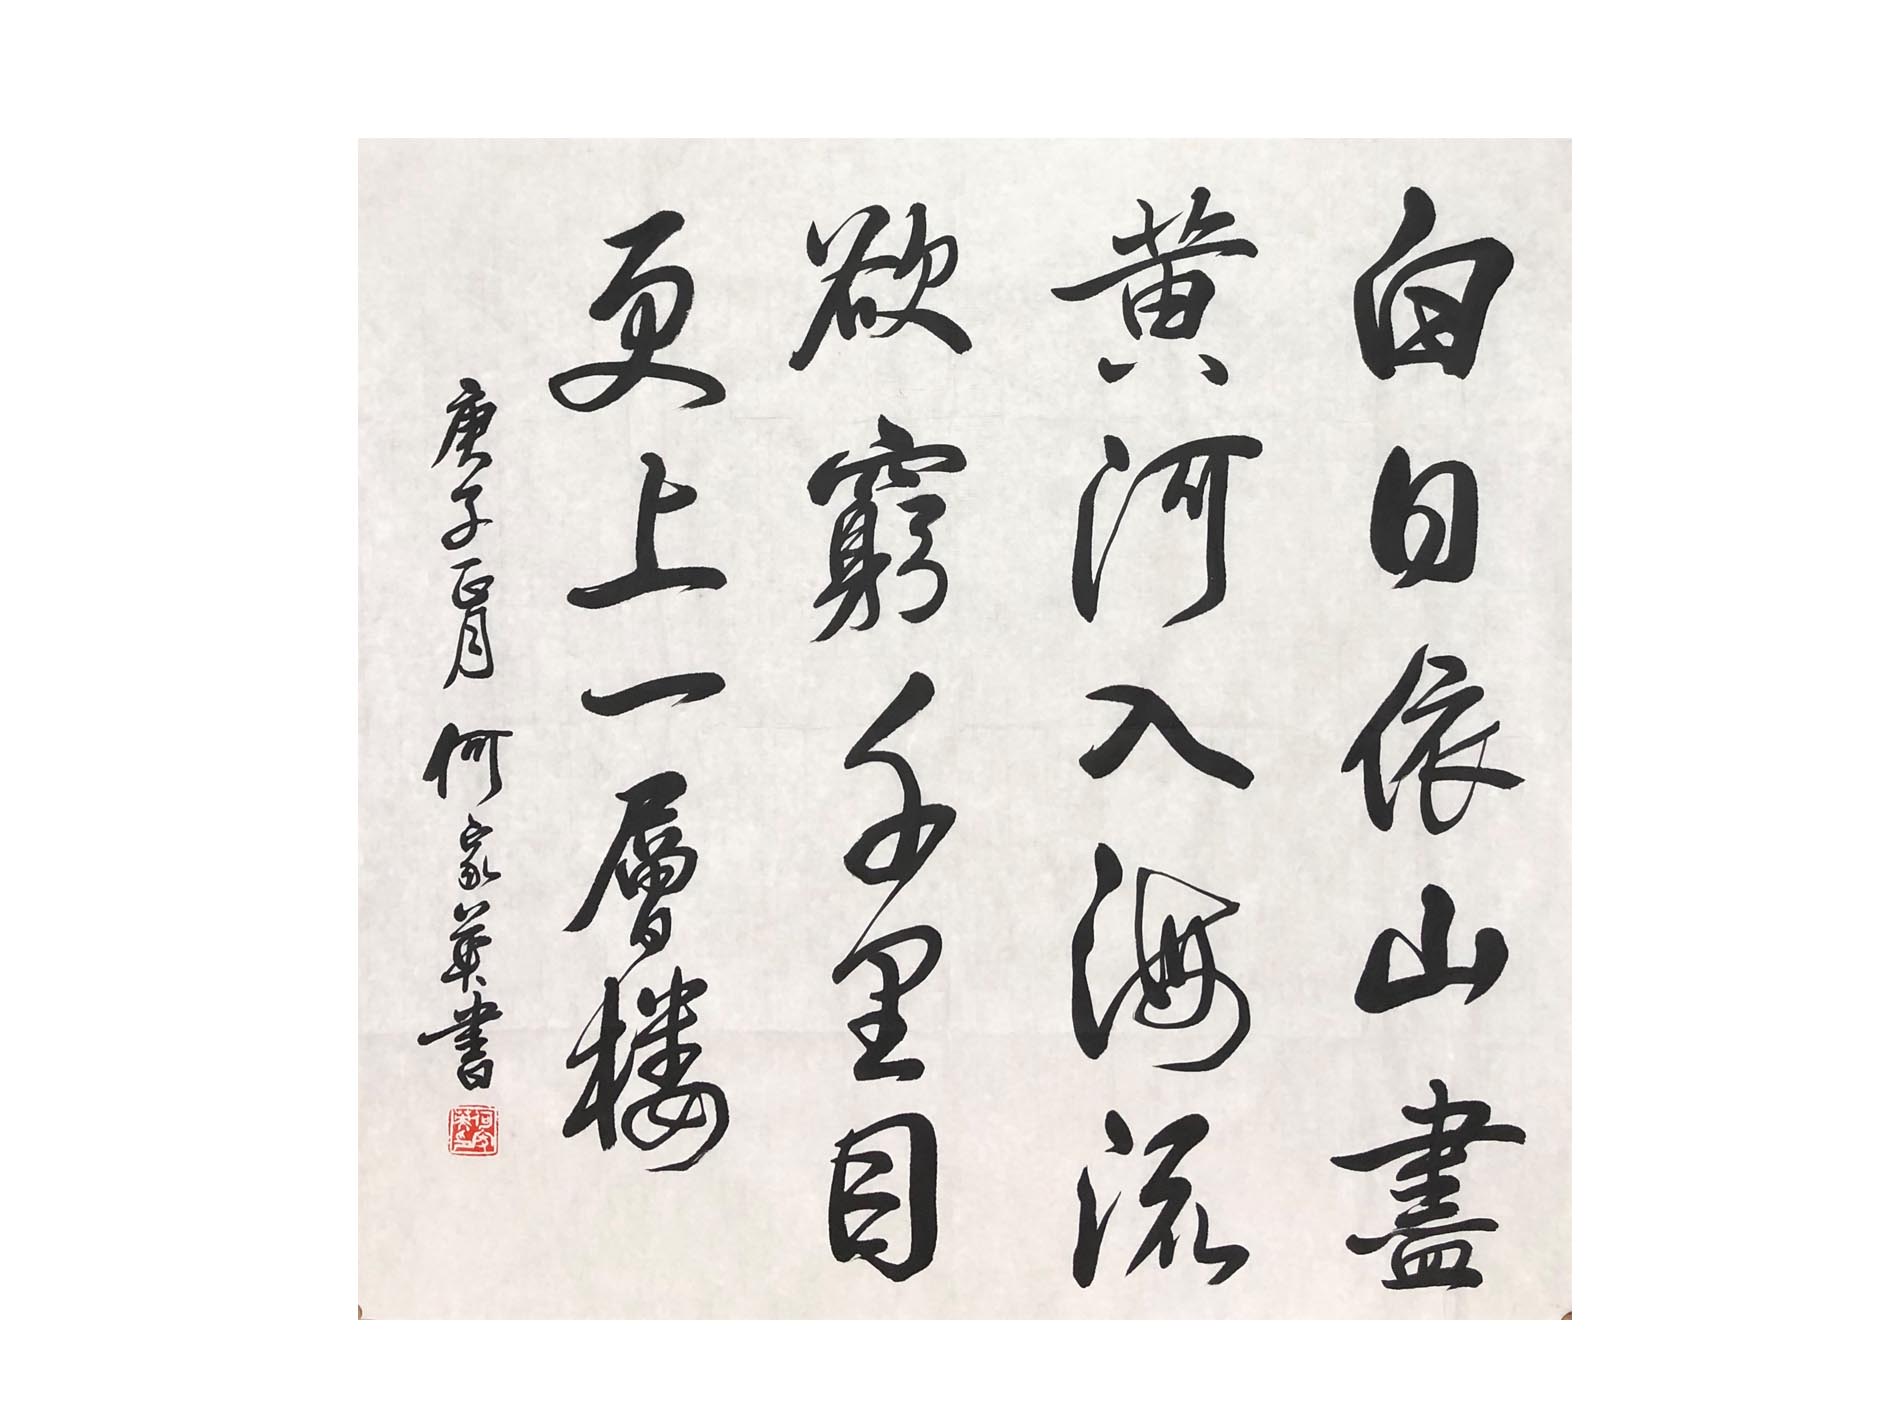 白日依山盡
黄河入海流
欲窮千里目
更上一層樓
庚子正月 何家英書
何家英印